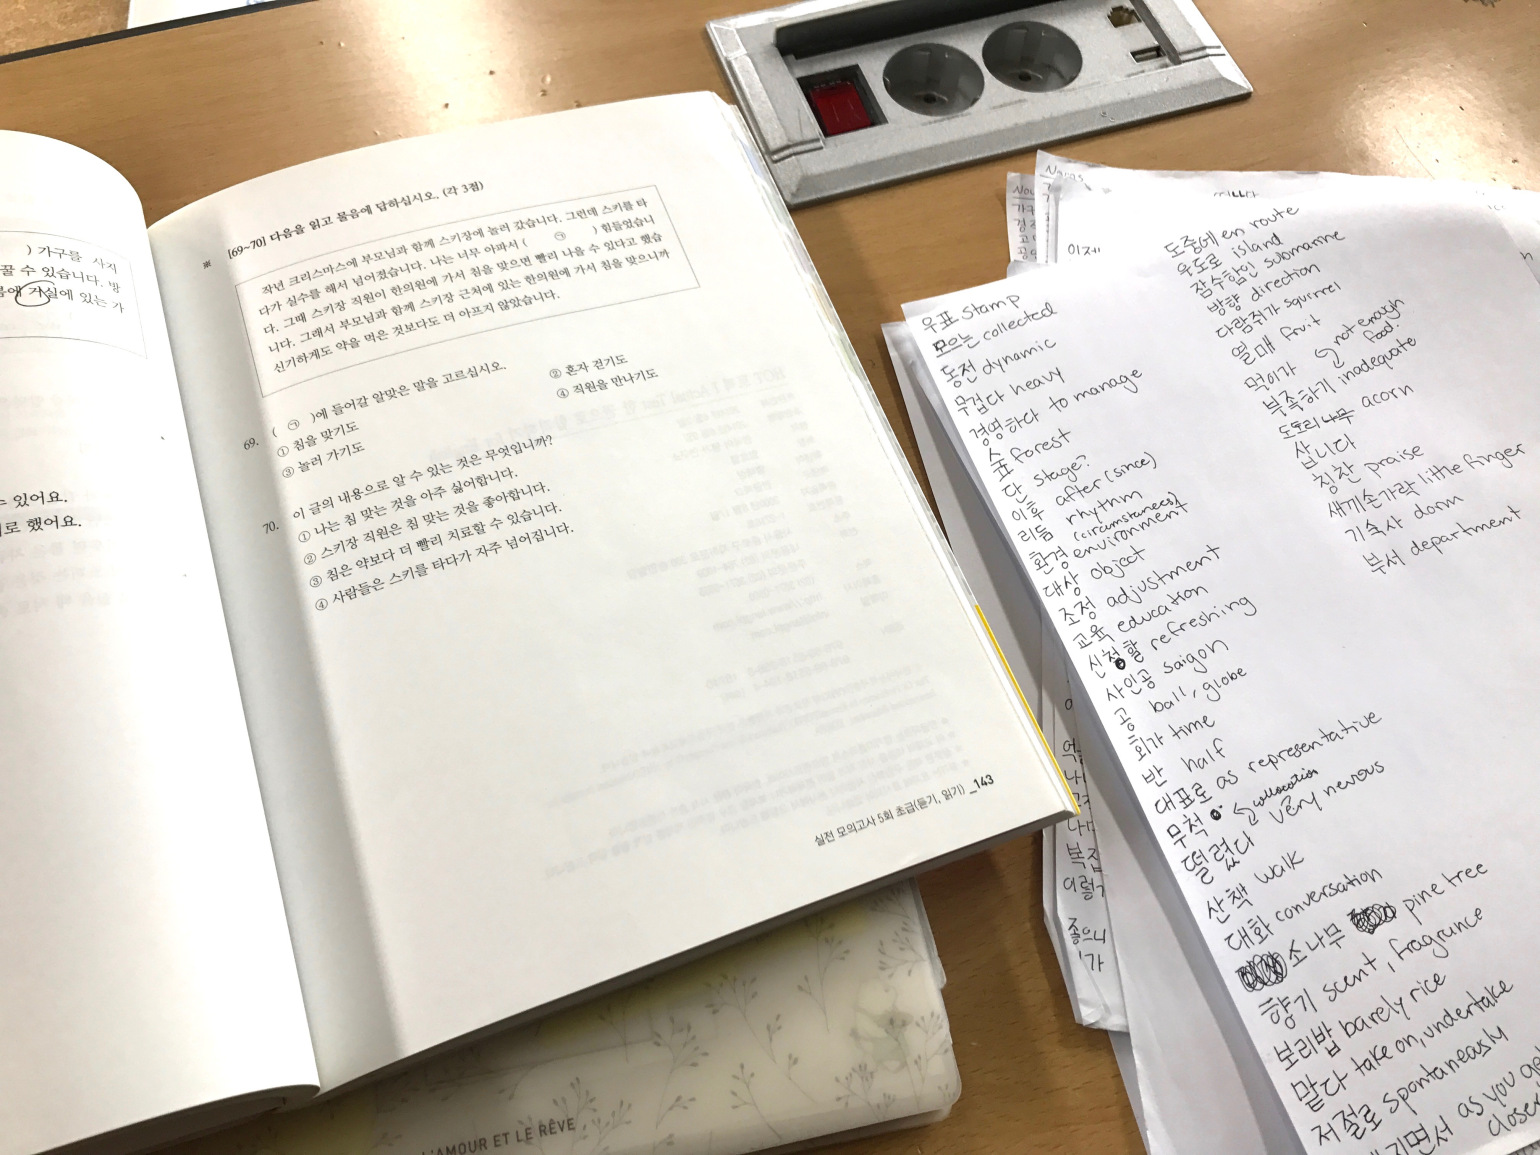 ) 가구를 사지
꿀 수 있습니다. 방
거실에 있는 가
수 있어요.
로 했어요.
※ [69~70] 다음을 읽고 물음에 답하십시오. (각 3점)
작년 크리스마스에 부모님과 함께 스키장에 놀러 갔습니다. 그런데 스키를 타
다가 실수를 해서 넘어졌습니다. 나는 너무 아파서 ( ㉠ ) 힘들었습니
다. 그때 스키장 직원이 한의원에 가서 침을 맞으면 빨리 나을 수 있다고 했습
니다. 그래서 부모님과 함께 스키장 근처에 있는 한의원에 가서 침을 맞으니까
신기하게도 약을 먹은 것보다도 더 아프지 않았습니다.
69. ( ㉠ )에 들어갈 알맞은 말을 고르십시오.
① 침을 맞기도 ② 혼자 걷기도
③ 놀러 가기도 ④ 직원을 만나기도
70. 이 글의 내용으로 알 수 있는 것은 무엇입니까?
① 나는 침 맞는 것을 아주 싫어합니다.
② 스키장 직원은 침 맞는 것을 좋아합니다.
③ 침은 약보다 더 빨리 치료할 수 있습니다.
④ 사람들은 스키를 타다가 자주 넘어집니다.
실전 모의고사 5회 초급(듣기, 읽기) _143
L'AMOUR ET LE RÊVE
이제
우표 stamp
모으는 collected
동전 dynamic
무겁다 heavy
경영하다 to manage
숲 forest
단 stage?
이후 after (since)
리듬 rhythm
(circumstances)
환경 environment
대상 object
조정 adjustment
교육 education
refreshing
사인공 saigon
공 ball, globe
회가 time
반 half
대표로 as representative
무척 collocation
떨렸다 very nervous
산책 walk
대화 conversation
소나무 pine tree
향기 scent, fragrance
보리밥 barely rice
맡다 take on, undertake
저절로 spontaneously
지면서 as you
closer
도중에 en route
우도로 island
잠수함인 submarine
방향 direction
다람쥐가 squirrel
열매 fruit
먹이가 not enough
food.
부족하기 inadequate
도토리 나무 acorn
삽니다
칭찬 praise
새끼손가락 little finger
기숙사 dorm
부서 department